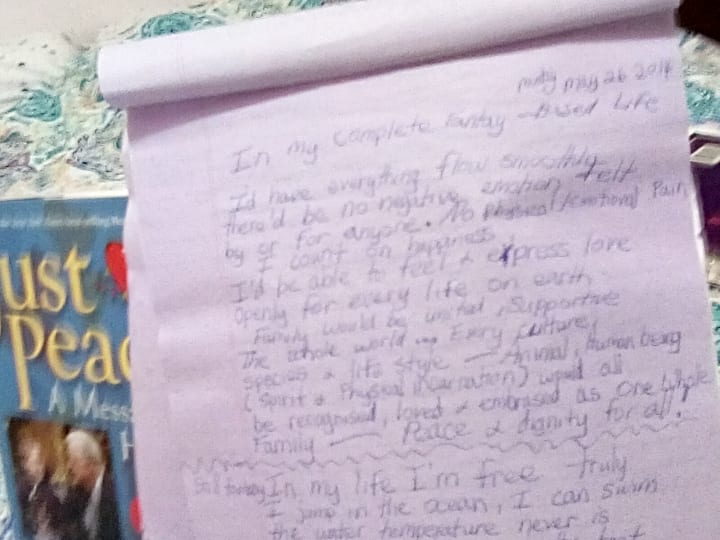 May 26 2014
In my complete Fantasy Based Life
I'd have everything flow smoothly
there'd be no negative emotion felt
by or for anyone. No Physical/emotional Pain
I count on happiness
I'd be able to feel & express love
openly for every life on earth
Family would be united, supportive
The whole world Every culture,
species & life style — Animal, Human being
(Spirit & Physical incarnation) would all
be recognised, loved & embrased as one whole
Family — Peace & dignity for all.
Still fantasy In my life I'm free truly
I jump in the ocean, I can swim
the water temperature never is
ust
Peac
A Mess
H